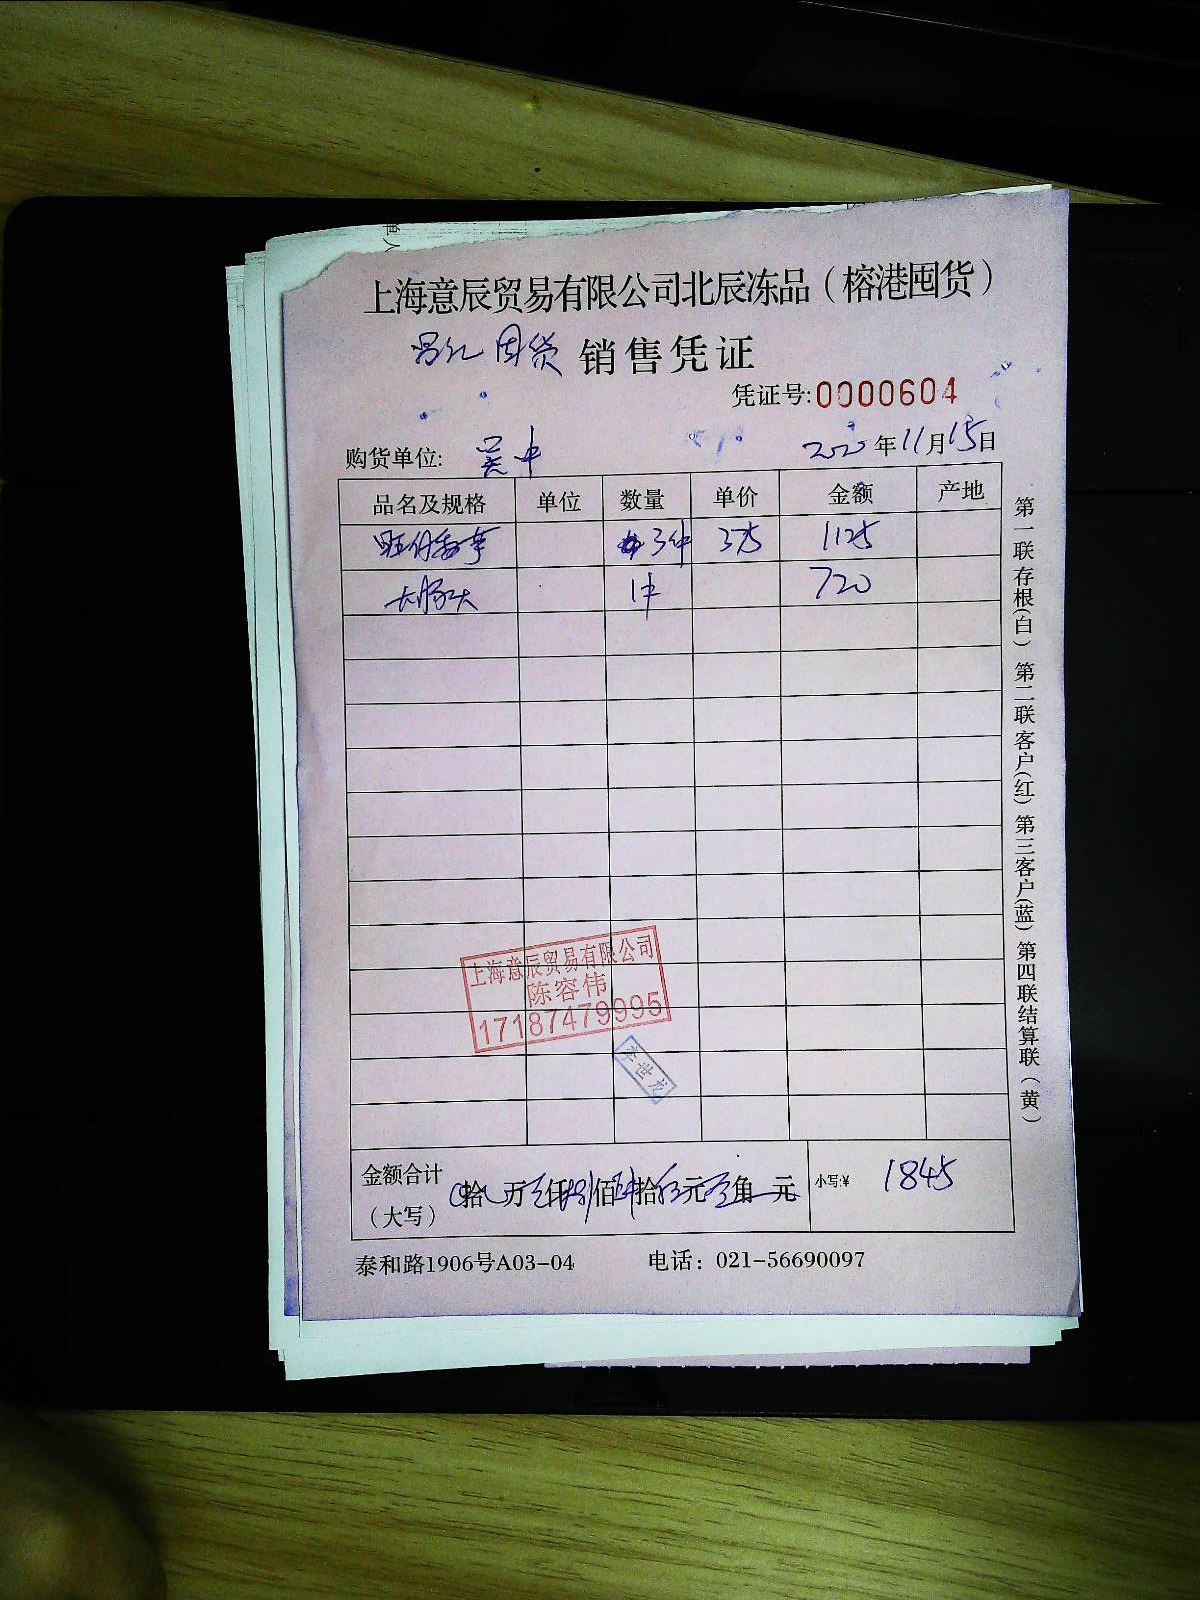 上海意辰贸易有限公司北辰冻品（榕港囤货）
销售凭证
凭证号:0000604
购货单位: 吴中 2020年11月15日
品名及规格 单位 数量 单价 金额 产地
3件 375 1125
1件 720
上海意辰贸易有限公司
陈容伟
17187479995
李世龙
金额合计（大写） 拾 万 仟 佰 拾 元 角 元 小写:¥ 1845
泰和路1906号A03-04 电话：021-56690097
第一联存根(白) 第二联客户(红) 第三客户(蓝) 第四联结算联（黄）